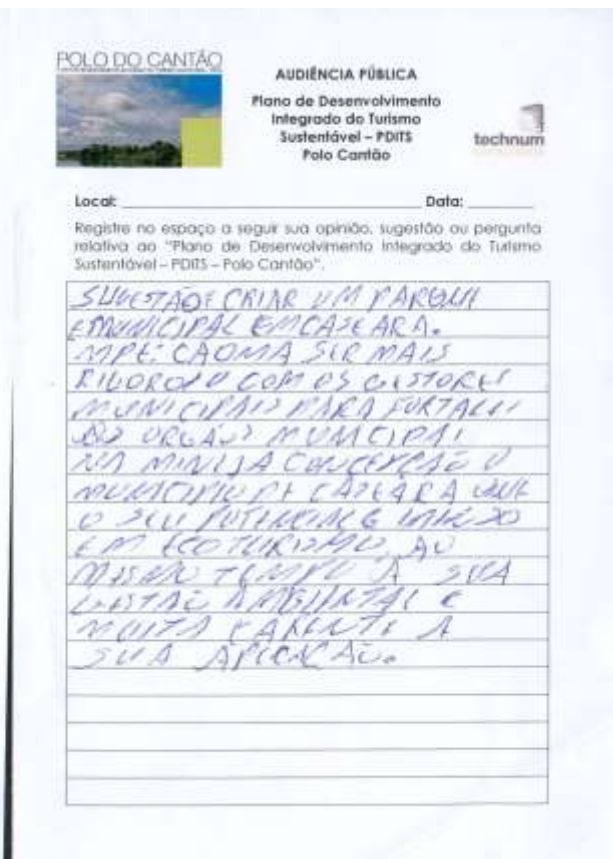 POLO DO CANTÃO
AUDIÊNCIA PÚBLICA
Plano de Desenvolvimento
Integrado do Turismo
Sustentável – PDITS
Polo Cantão
technum
Local: Data:
Registre no espaço a seguir sua opinião, sugestão ou pergunta
relativa ao "Plano de Desenvolvimento Integrado do Turismo
Sustentável – PDITS – Polo Cantão".
CRIAR UM PARQUE
MUNICIPAL EM CASEARA.
MPE CAOMA SER MAIS
COM OS GESTORES
MUNICIPAIS PARA
MUNICIPAL
NA MINHA CONCEPÇÃO O
MUNICIPIO DE CASEARA QUE
O SEU
EM ECOTURISMO, AO
MESMO TEMPO A SUA
GESTÃO AMBIENTAL E
MUITA CARENTE A
SUA APLICAÇÃO.